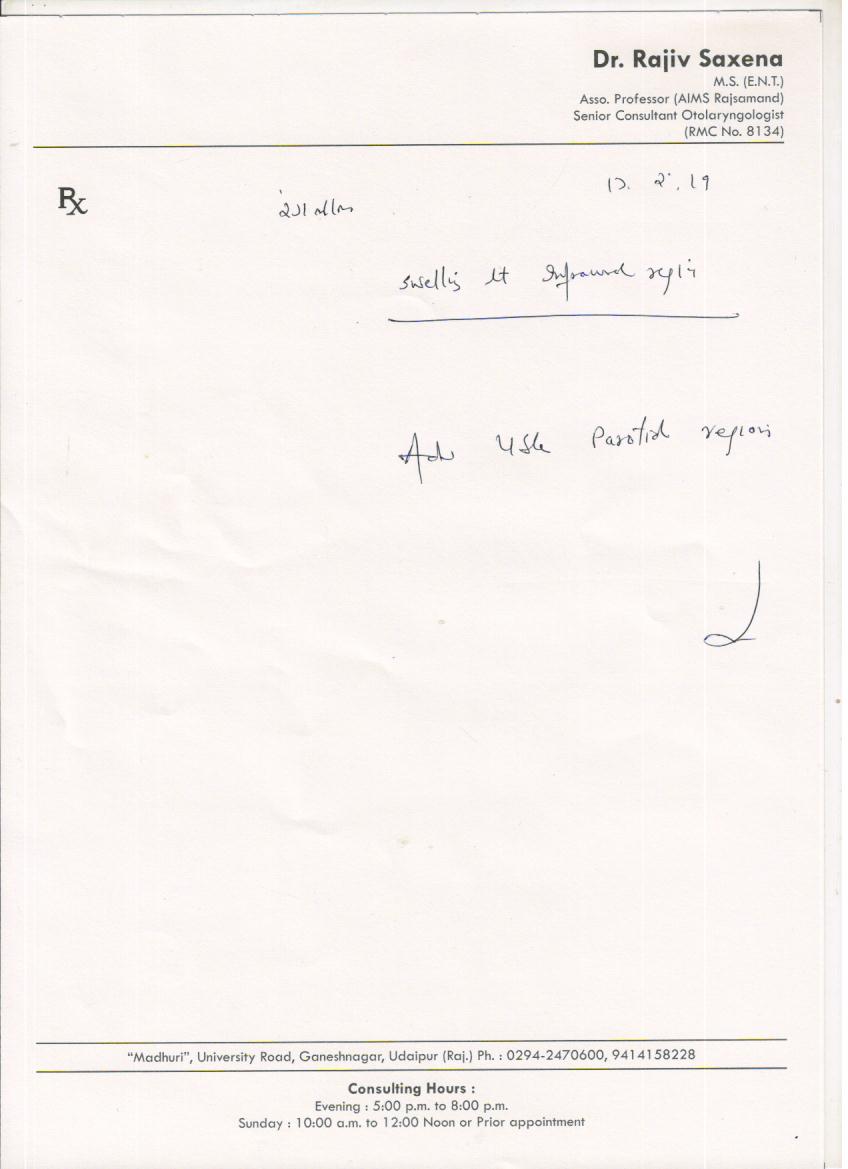 Dr. Rajiv Saxena
M.S. (E.N.T.)
Asso. Professor (AIMS Rajsamand)
Senior Consultant Otolaryngologist
(RMC No. 8134)
Rx
2.19
swelling lt region
Adv USG Parotid region
"Madhuri", University Road, Ganeshnagar, Udaipur (Raj.) Ph. : 0294-2470600, 9414158228
Consulting Hours :
Evening : 5:00 p.m. to 8:00 p.m.
Sunday : 10:00 a.m. to 12:00 Noon or Prior appointment